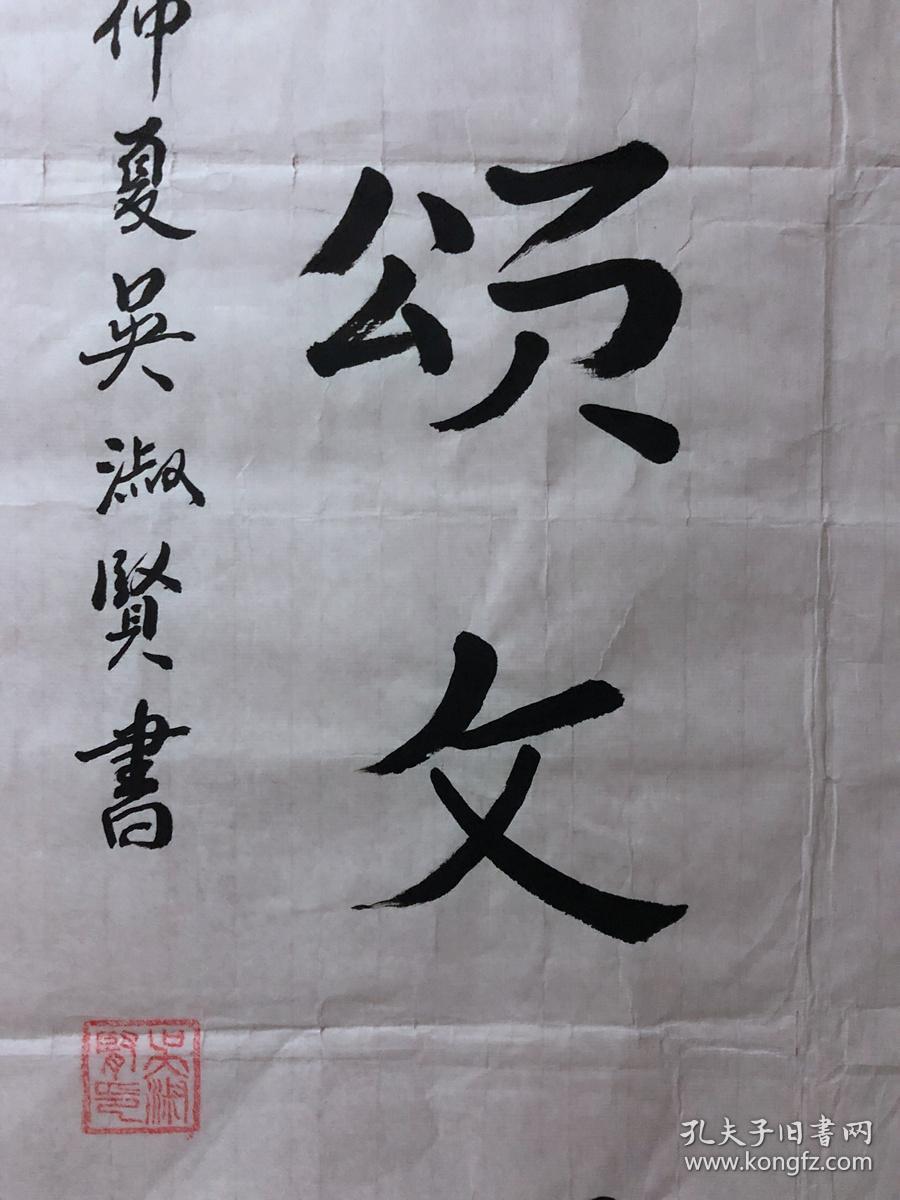 颂文
仲夏吳淑賢書
吳淑賢印
孔夫子旧書网
www.kongfz.com